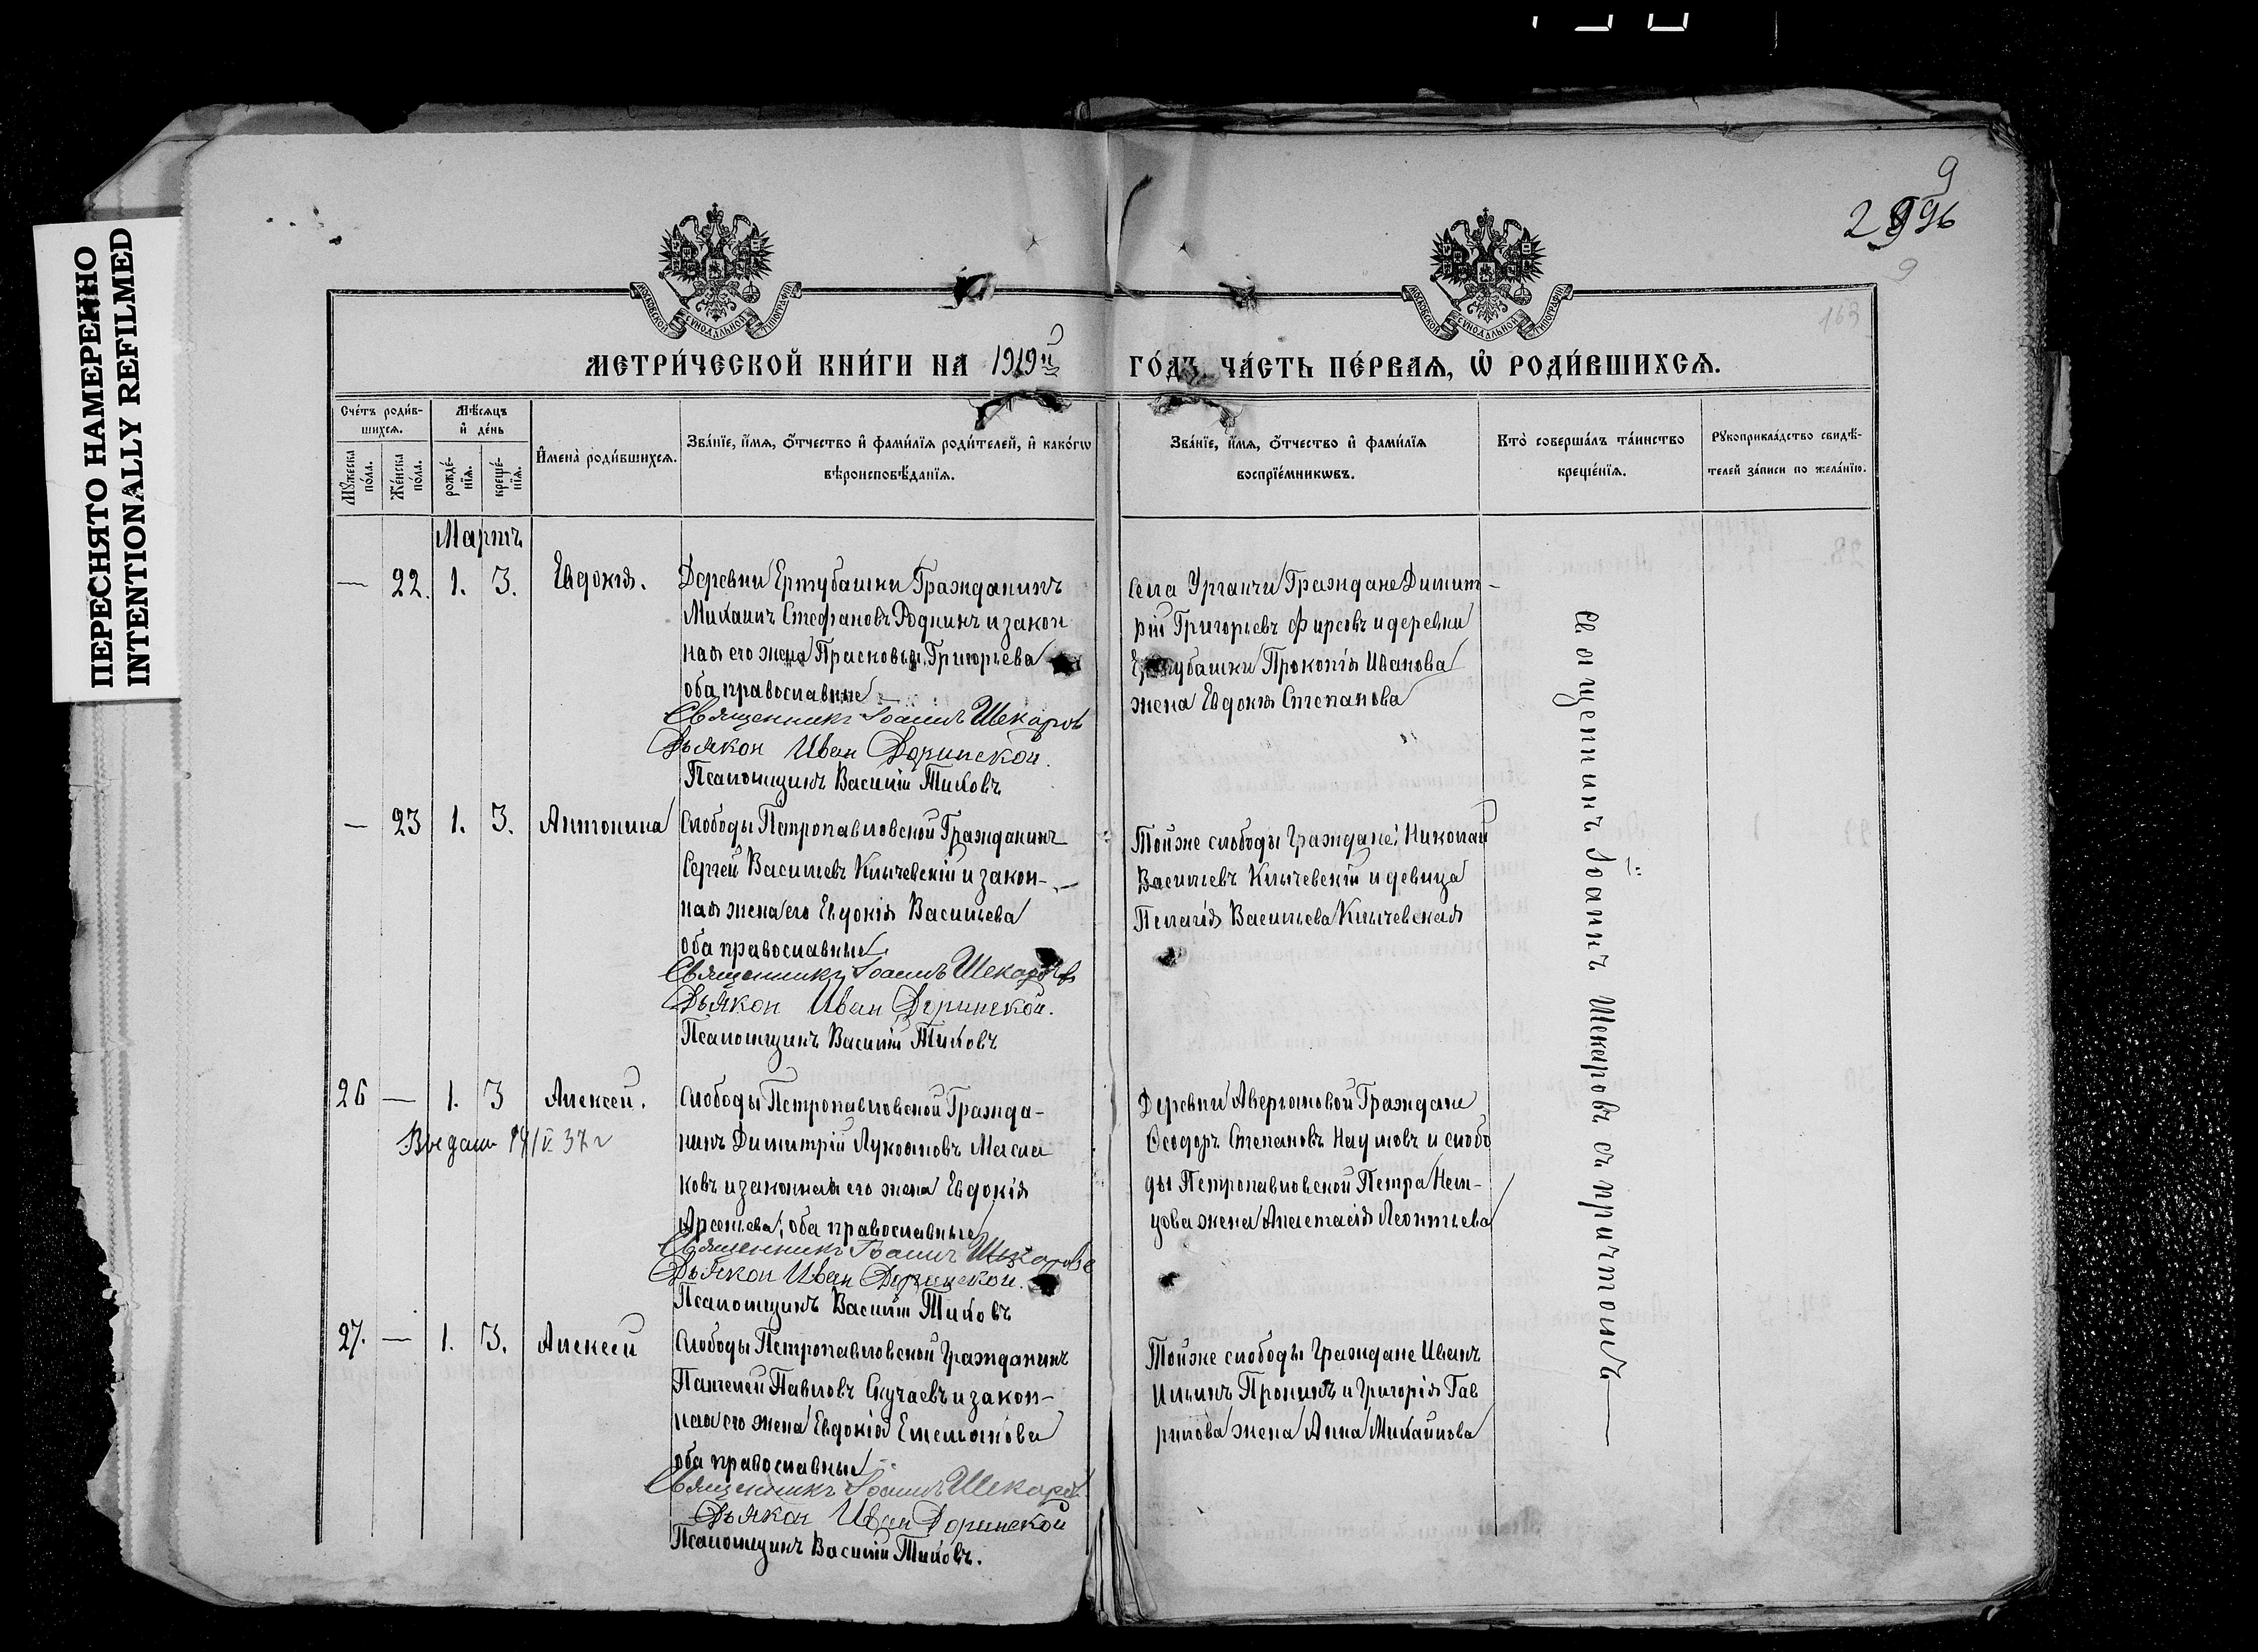 ПЕРЕСНЯТО НАМЕРЕННО
INTENTIONALLY REFILMED
9
9
163
МОСКОВСКОЙ СѴНОДАЛЬНОЙ ТИПОГРАФІИ
МОСКОВСКОЙ СѴНОДАЛЬНОЙ ТИПОГРАФІИ
МЕТРИ́ЧЕСКОЙ КНИ́ГИ НА 1919й
ГО́ДЪ, ЧА́СТЬ ПЕ́РВАѦ, Ѽ РОДИ́ВШИХСѦ.
Сче́тъ роди́в-
шихсѧ.
Мꙋжеска по́ла.
Же́нска по́ла.
Мѣ́сѧцъ
и҆ де́нь
рожде́-
нїѧ.
креще́-
нїѧ.
И҆мена̀ роди́вшихсѧ.
Зва́нїе, и҆́мѧ, ѻ҆́тчество и҆ фами́лїѧ роди́телей, и҆ како́гѡ
вѣроисповѣ́данїѧ.
Зва́нїе, и҆́мѧ, ѻ҆́тчество и҆ фами́лїѧ
воспрїе́мникѡвъ.
Кто̀ соверша́лъ та́инство
креще́нїѧ.
Рꙋкоприкла́дство свидѣ́-
телей за́писи по жела́нїю.
Мартъ
— 22. 1. 3. Евдокія.
Деревни Ертубашки Гражданинъ
Михаилъ Стефановъ Роднинъ и закон
ная его жена Прасковья Григорьева
оба православные
Священникъ Іоаннъ Шекаровъ
Дьякон Иван Доринской.
Псаломщикъ Василій Тиховъ
Села Урганчи Граждане Димит-
рій Григорьевъ Фирсовъ и деревни
Ертубашки Прокопія Иванова
жена Евдокія Степанова
— 23 1. 3. Антонина
Слободы Петропавловской Гражданинъ
Сергей Васильевъ Ключевскій и закон-
ная жена его Евдокія Васильева
оба православные
Священникъ Іоаннъ Шекаровъ
Дьякон Иван Доринской.
Псаломщикъ Василій Тиховъ
Тойже слободы Граждане: Николай
Васильевъ Ключевскій и девица
Пелагія Васильева Ключевская
26 — 1. 3 Алексей.
37 г
Слободы Петропавловской Гражда-
нинъ Димитрій Лукояновъ Масла
ковъ и законная его жена Евдокія
Арсеньева; оба православные
Священникъ Іоаннъ Шекаровъ
Дьякон Иван Доринской.
Псаломщикъ Василій Тиховъ
Деревни Аверьяновой Граждане
Ѳеодоръ Степановъ Наумовъ и слобо
ды Петропавловской Петра Нем-
цова жена Анастасія Леонтьева
27. — 1. 3. Алексей
Слободы Петропавловской Гражданинъ
Пантелей Павловъ Скучаевъ и закон-
ная его жена Евдокія Емельянова
оба православные
Священникъ Іоаннъ Шекаровъ
Дьякон Иван Доринской
Псаломщикъ Василій Тиховъ.
Тойже слободы Граждане Иванъ
Ильинъ Пронинъ и Григорія Гав
рилова жена Анна Михайлова
Священникъ Іоаннъ Шекаровъ съ причтомъ —